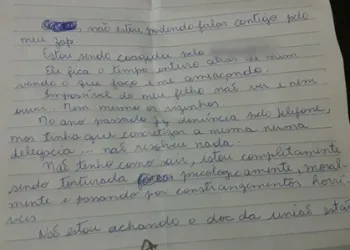 , não estou podendo falar contigo pelo
meu zap.
Estou sendo coagida pelo
Ele fica o tempo inteiro atrás de mim
vendo o que faço e me ameaçando.
Impossível do meu filho não ver e nem
ouvir... Nem mesmo os vizinhos
No ano passado fiz denúncia pelo telefone,
mas tinha que concretizar a mesma numa
delegacia ... não resolveu nada.
Não tenho como sair, estou completamente
sendo torturada psicologicamente, moral-
mente e passando por constrangimentos horrí-
veis
Não estou achando o doc da união está